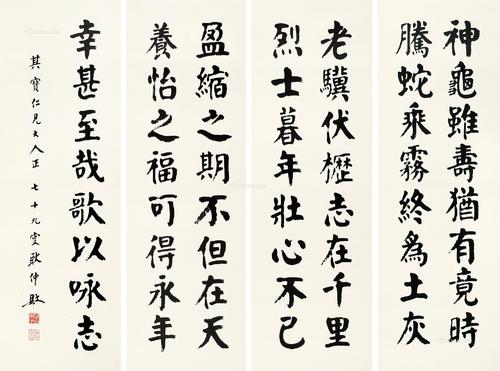 神龜雖壽猶有竟時
騰蛇乘霧終為土灰
老驥伏櫪志在千里
烈士暮年壯心不已
盈縮之期不但在天
養怡之福可得永年
幸甚至哉歌以咏志
其寶仁兄大人正 七十九叟耿仲敭